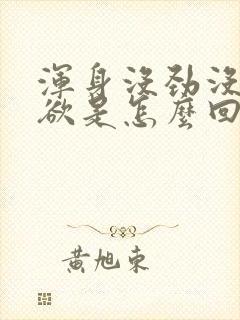 渾身沒勁沒
欲是怎麼回
黃旭東